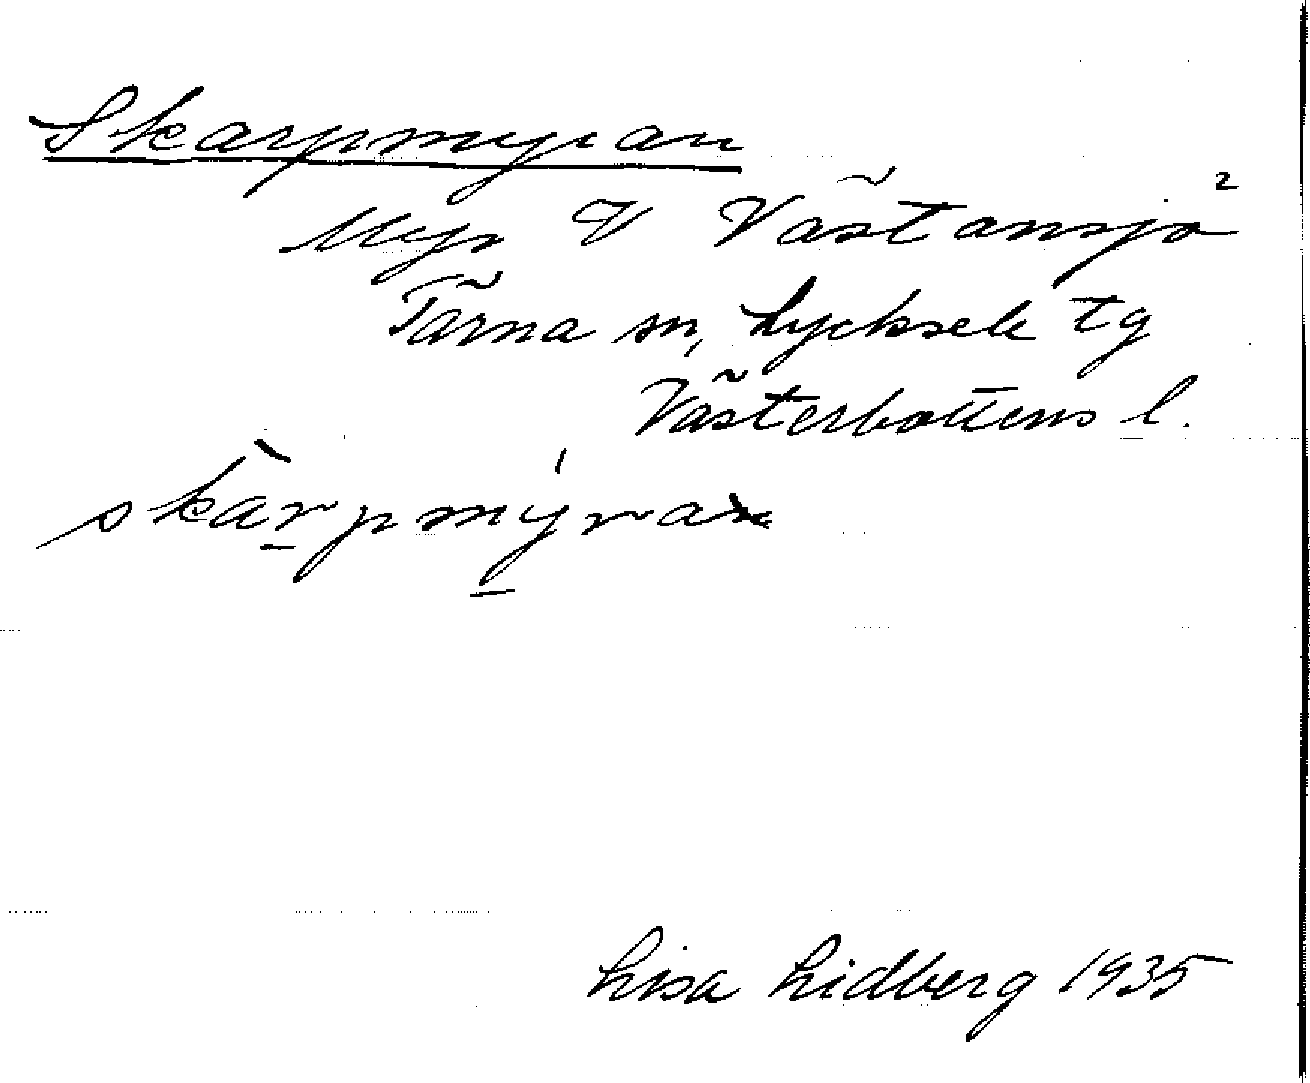 Skarpmyran
Myr V Västansjö ²
Tärna sn, Lycksele tg
Västerbottens l.
skàrpmýra
Lisa Lidberg 1935